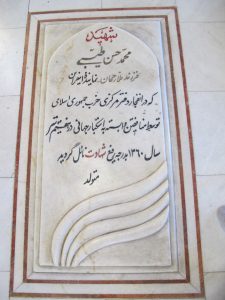 شهید
محمد حسن طیبی
فرزند غلامرضا نماینده اسفراین
که در انفجار دفتر مرکزی حزب جمهوری اسلامی
توسط منافقین وابسته به استکبار جهانی در هفتم تیر
سال ۱۳۶۰ به درجه رفیع شهادت نائل گردید
متولد